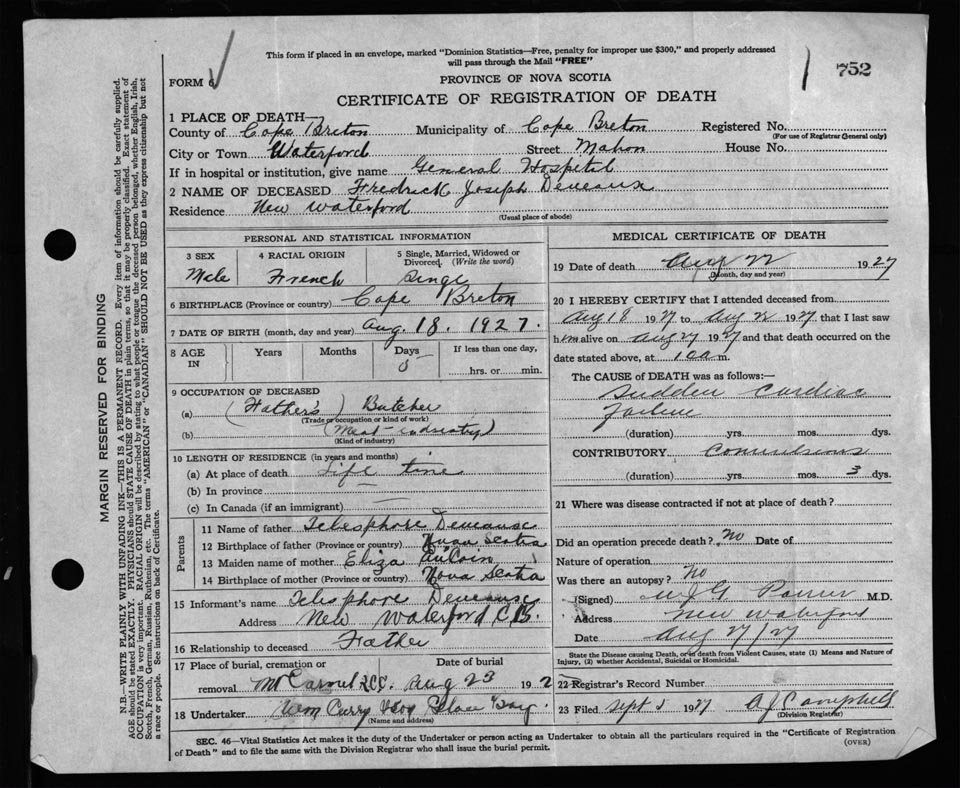 This form if placed in an envelope, marked "Dominion Statistics—Free, penalty for improper use $300," and properly addressed
will pass through the Mail "FREE"
FORM 6
752
PROVINCE OF NOVA SCOTIA
CERTIFICATE OF REGISTRATION OF DEATH
1 PLACE OF DEATH—
County of Cape Breton Municipality of Cape Breton Registered No.
(For use of Registrar General only)
City or Town Waterford Street Mahon House No.
If in hospital or institution, give name General Hospital
2 NAME OF DECEASED Fredrick Joseph Deveaux
Residence New Waterford
(Usual place of abode)
PERSONAL AND STATISTICAL INFORMATION
3 SEX 4 RACIAL ORIGIN 5 Single, Married, Widowed or Divorced. (Write the word)
Male French Single
6 BIRTHPLACE (Province or country) Cape Breton
7 DATE OF BIRTH (month, day and year) Aug. 18. 1927.
8 AGE IN Years Months Days If less than one day,
5 hrs. or min.
9 OCCUPATION OF DECEASED
(a) (Fathers) Butcher
(Trade or occupation or kind of work)
(b) (Meat-industry)
(Kind of industry)
10 LENGTH OF RESIDENCE (in years and months)
(a) At place of death Life time
(b) In province —
(c) In Canada (if an immigrant) —
Parents
11 Name of father Telesphore Deveause
12 Birthplace of father (Province or country) Nova Scotia
13 Maiden name of mother Eliza AuCoin
14 Birthplace of mother (Province or country) Nova Scotia
15 Informant's name Telesphore Deveause
Address New Waterford C.B.
16 Relationship to deceased Father
17 Place of burial, cremation or removal Mt Carmel Date of burial Aug 23 192
18 Undertaker Wm Curry Glace Bay
(Name and address)
MEDICAL CERTIFICATE OF DEATH
19 Date of death Aug 22 1927
(Month, day and year)
20 I HEREBY CERTIFY that I attended deceased from
Aug 18 1927 to Aug 22 1927, that I last saw
him alive on Aug 1927 and that death occurred on the
date stated above, at m.
The CAUSE of DEATH was as follows:—
Sudden Cardiac
Failure
(duration) yrs. mos. dys.
CONTRIBUTORY Convulsions
(duration) yrs. mos. 3 dys.
21 Where was disease contracted if not at place of death?
Did an operation precede death? No Date of
Nature of operation
Was there an autopsy? No
(Signed) M.D.
Address New Waterford
Date Aug 27/27
State the Disease causing Death, or in death from Violent Causes, state (1) Means and Nature of
Injury, (2) whether Accidental, Suicidal or Homicidal.
22 Registrar's Record Number
23 Filed Sept 1927 A J Campbell
(Division Registrar)
SEC. 46—Vital Statistics Act makes it the duty of the Undertaker or person acting as Undertaker to obtain all the particulars required in the "Certificate of Registration
of Death" and to file the same with the Division Registrar who shall issue the burial permit.
(OVER)
MARGIN RESERVED FOR BINDING
N.B.—WRITE PLAINLY WITH UNFADING INK—THIS IS A PERMANENT RECORD. Every item of information should be carefully supplied.
AGE should be stated EXACTLY. PHYSICIANS should STATE CAUSE OF DEATH in plain terms, so that it may be properly classified. Exact statement of
OCCUPATION is very important. RACIAL ORIGIN will be described by stating to what people or tongue the deceased person belonged, whether English, Irish,
Scotch, French, German, Russian, Ruthenian, etc. The terms "AMERICAN" or "CANADIAN" SHOULD NOT BE USED as they express citizenship but not
a race or people. See instructions on back of Certificate.